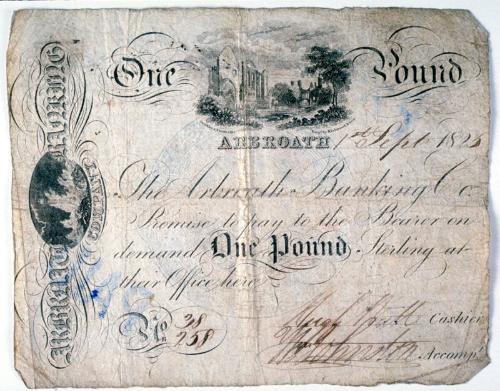 One Pound
ARBROATH 1st Sept 182
The Arbroath Banking Co.
Promise to pay to the Bearer on
demand One Pound Sterling at
their Office here
No 38/258
Hugh Cashier
Accompt
ARBROATH BANKING COMPANY